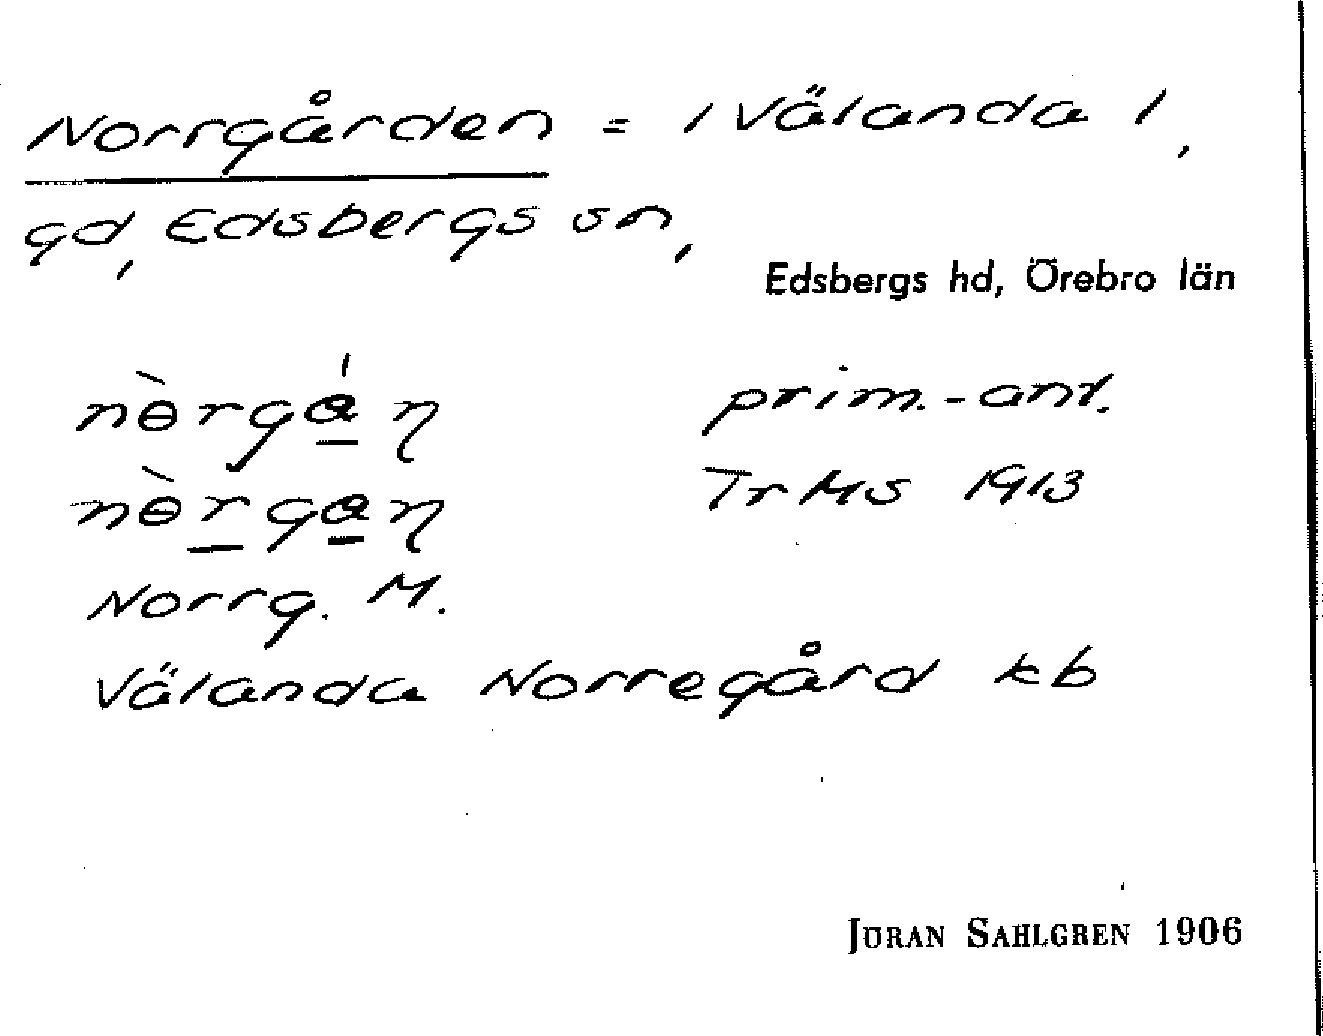 Norrgården = 1 Välanda 1,
gd, Edsbergs sn,
Edsbergs hd, Örebro län
nɵ̀rgá̱η prim.-ant.
nɵ̀ṟga̱η TrMS 1913
Norrg. M.
Välanda Norregård kb
JÖRAN SAHLGREN 1906